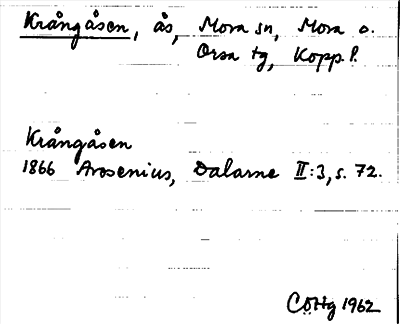 Krångåsen, ås, Mora sn, Mora o.
Orsa tg, Kopp. l.
Krångåsen
1866 Arosenius, Dalarne II:3, s. 72.
CÖttg 1962